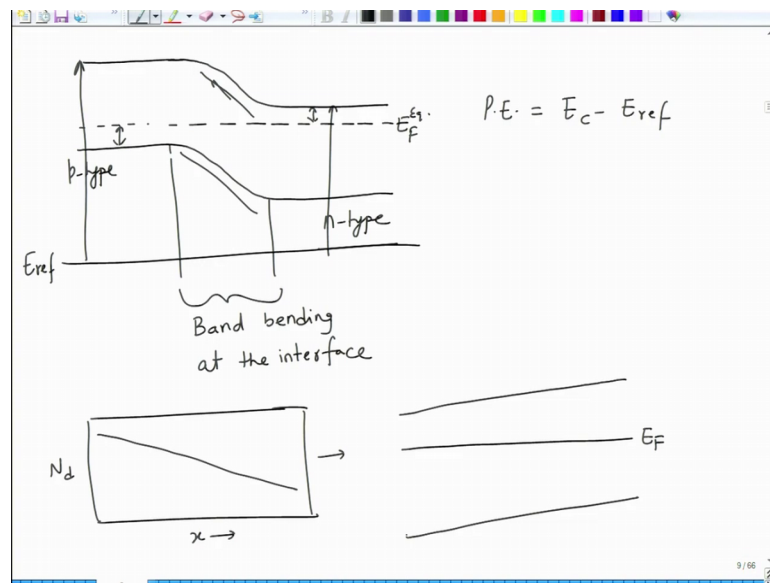 P.E. = Ec - Eref
EF Eq.
p-type
n-type
Eref
Band bending
at the interface
Nd
x →
→
EF
9 / 66